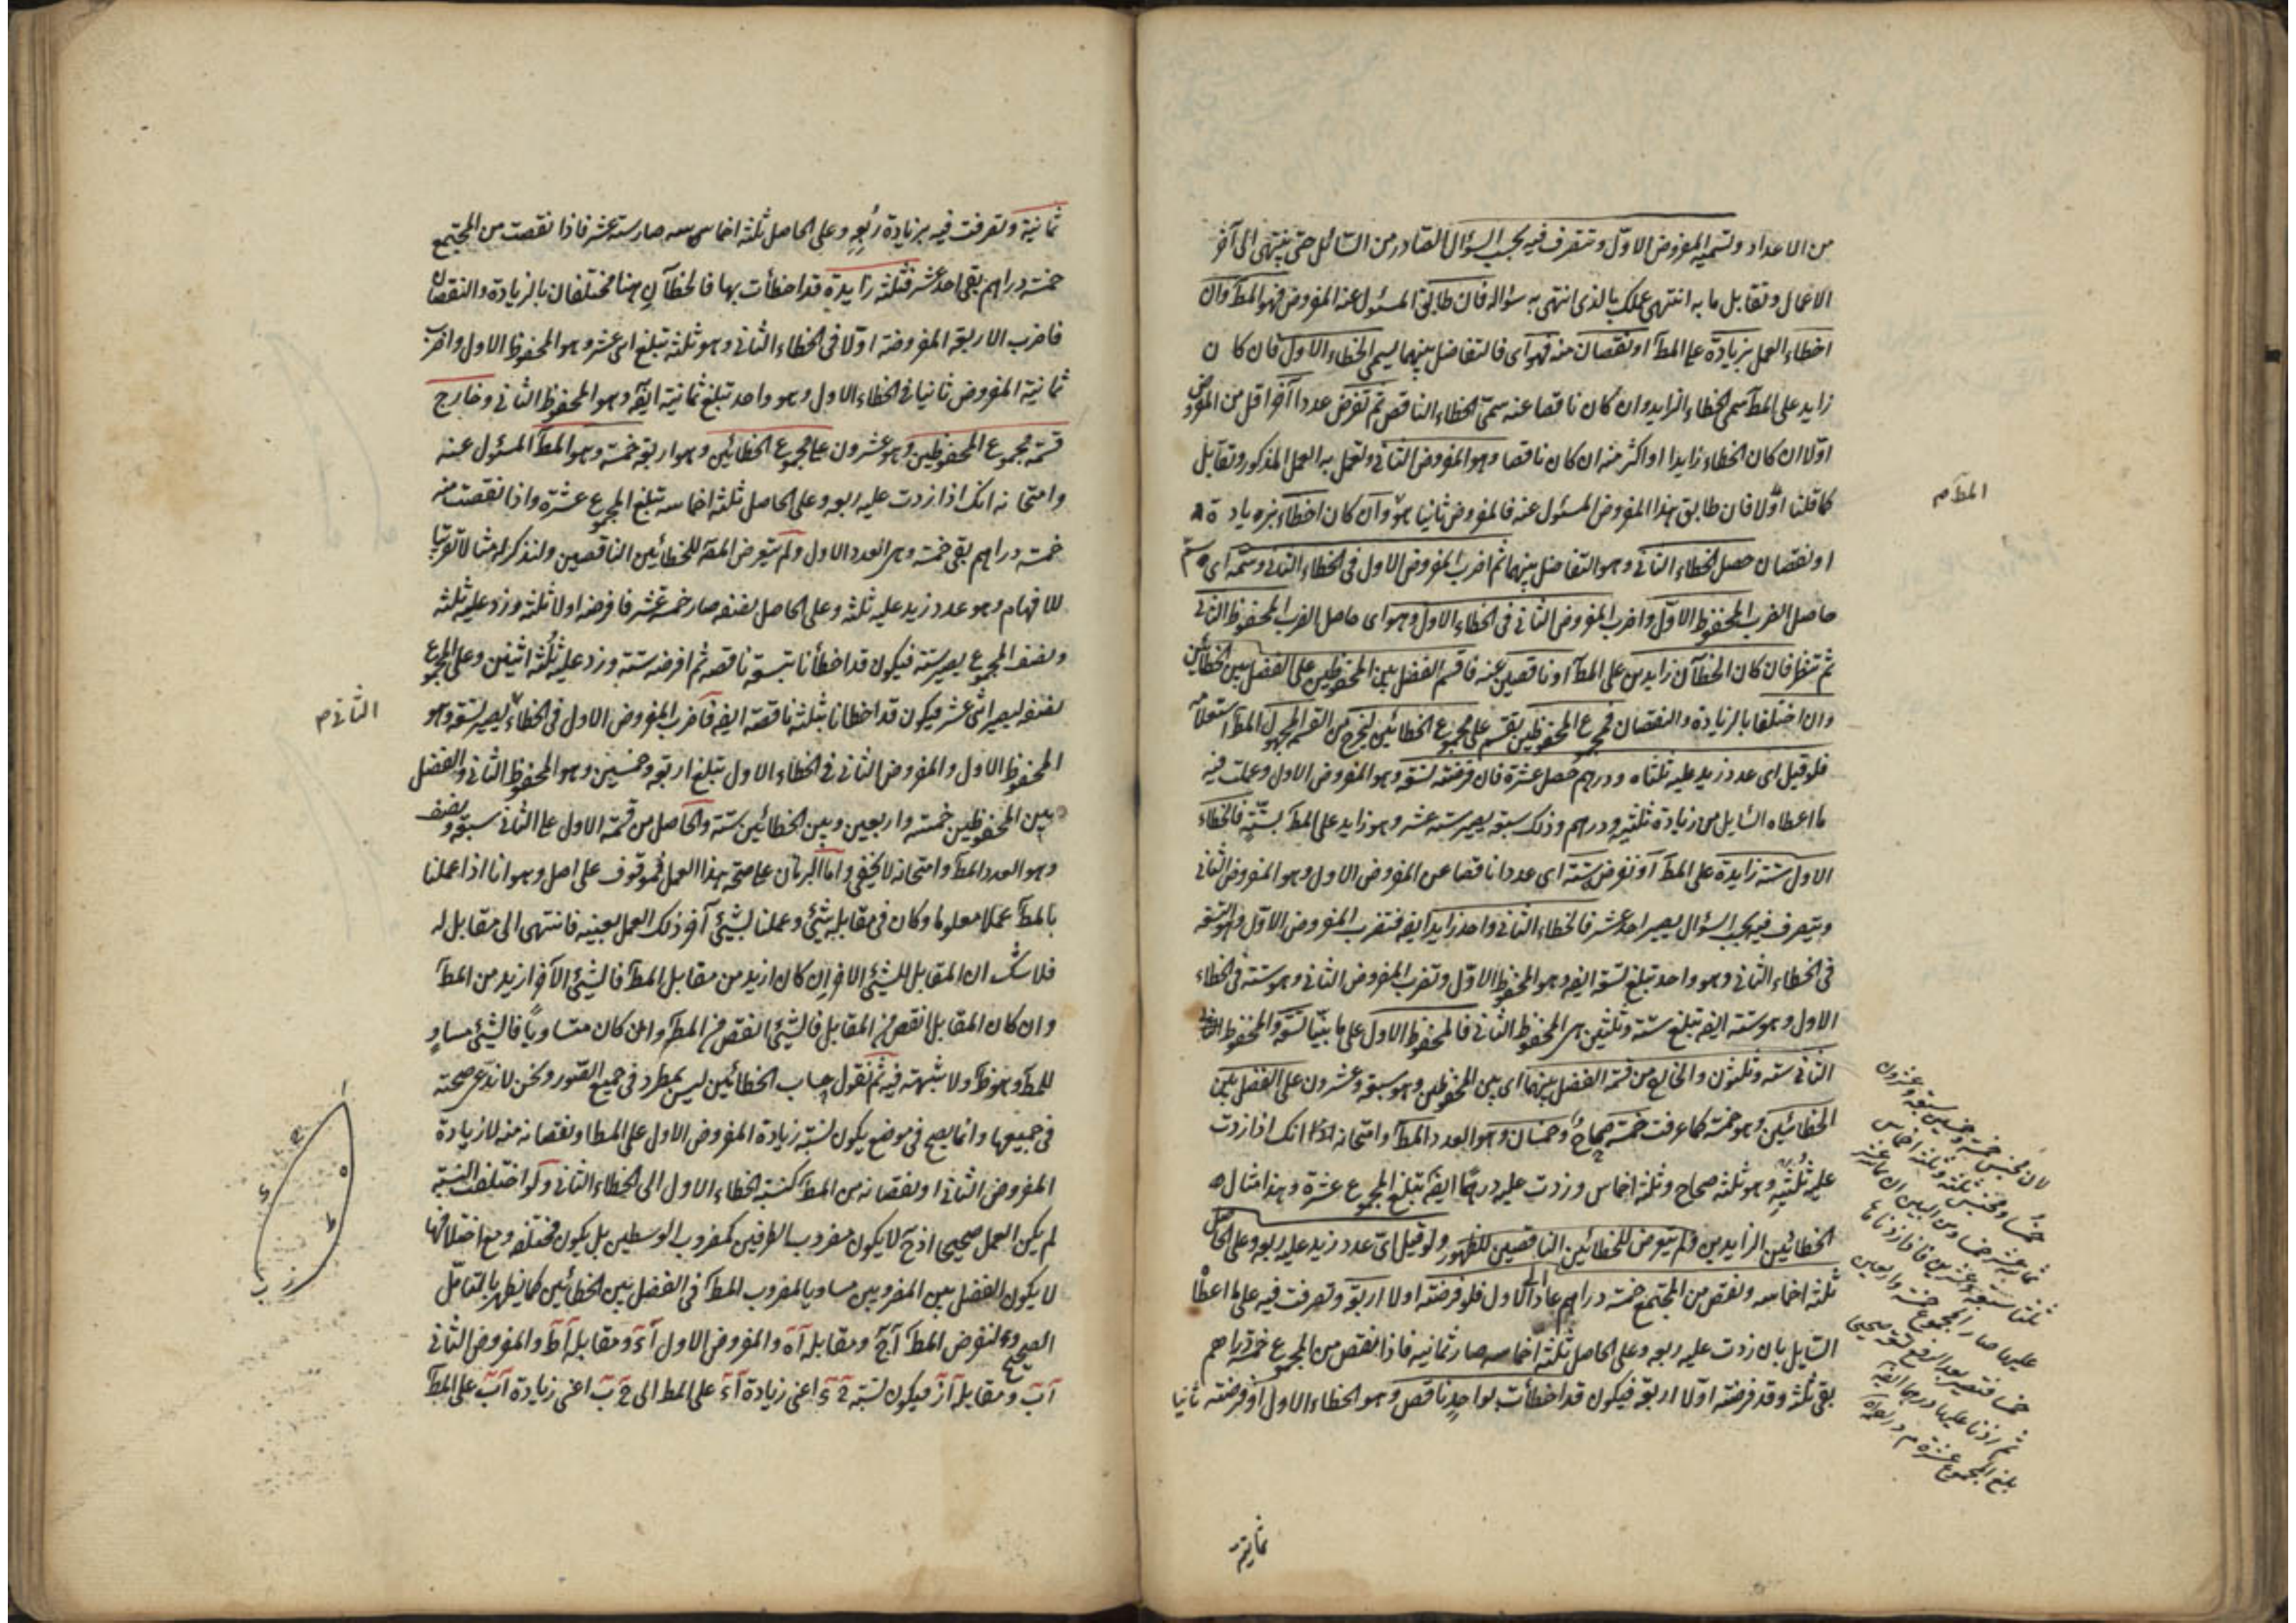 من الاعداد وتسميه المفروض الاول وتتصرف فيه بحسب السؤال الصادر من السائل حتى ينتهى الى آخر
الاعمال وتقابل ما به انتهى عملك بالذى انتهى به سؤاله فان طابق المسئول عنه المفروض فهو المط وان
اخطاء العمل بزيادة على المط او نقصان منه فهو اى فالتفاضل بينهما يسمى الخطاء الاول فان كان
زايد على المط سمى الخطاء الزايد وان كان ناقصا عنه سمى الخطاء الناقص ثم تفرض عددا آخر اقل من المفروض
اولا ان كان الخطاء زايدا او اكثر منه ان كان ناقصا وهو المفروض الثانى وتعمل به العمل المذكور وتقابل
كما قلنا اولا فان طابق هذا المفروض المسئول عنه فالمفروض ثانيا هو وان كان اخطاء بزيادة
او نقصان حصل الخطاء الثانى وهو التفاضل بينهما ثم اضرب المفروض الاول فى الخطاء الثانى وسمه اى
حاصل الضرب المحفوظ الاول واضرب المفروض الثانى فى الخطاء الاول وهو اى حاصل الضرب المحفوظ الثانى
ثم تنظر فان كان الخطآن زايدين على المط او ناقصين عنه فاقسم الفضل بين المحفوظين على الفضل بين الخطائين
وان اختلفا بالزيادة والنقصان فمجموع المحفوظين يقسم على مجموع الخطائين ليخرج من القسم المجهول المط
فلو قيل اى عدد زيد عليه ثلثاه ودرهم حصل عشرة فان فرضته تسعة وهو المفروض الاول وعملت فيه
ما اعطاه السايل من زيادة ثلثيه ودرهم وذلك سبعة يصير ستة عشر وهو زايد على المط بستة فالخطاء
الاول ستة زايدة على المط او تفرض ستة اى عددا ناقصا عن المفروض الاول وهو المفروض الثانى
ويتصرف فيه بحسب السؤال يصير احد عشر فالخطاء الثانى واحد زايدا ايضه فتضرب المفروض الاول وهو تسعة
فى الخطاء الثانى وهو واحد تبلغ تسعة ايضه وهو المحفوظ الاول وتضرب المفروض الثانى وهو ستة فى الخطاء
الاول وهو ستة ايضه تبلغ ستة وثلثين هى المحفوظ الثانى فالمحفوظ الاول على ما بينا تسعة والمحفوظ
الثانى ستة وثلثون والخارج من قسمة الفضل بينهما اى بين المحفوظين وهو سبعة وعشرون على الفضل بين
الخطائين وهو خمسة كما عرفت خمسة صحاح وخمسان وهو العدد المط وامتحانه انك اذا زدت
عليه ثلثيه وهو ثلثة صحاح وثلثة اخماس وزدت عليه درهما ايضه تبلغ المجموع عشرة وهذا مثال
الخطائين الزايدين ولم يتعرض للخطائين الناقصين للظهور ولو قيل اى عدد زيد عليه ربعه وعلى الحاصل
ثلثة اخماسه ونقص من المجتمع خمسة دراهم عاد الاول فلو فرضته اولا اربعة وتصرفت فيه على ما اعطا
السايل بان زدت عليه ربعه وعلى الحاصل ثلثة اخماسه صار ثمانية فاذا نقص من المجموع خمسة دراهم
بقى ثلثة وقد فرضته اولا اربعة فيكون قد اخطأت بواحد ناقص وهو الخطاء الاول او فرضته ثانيا
المط م
لان مجنس خمسة وخمسين سبعة وعشرون
خمسا ومجنس ثلثة وثلثة اخماس
ثمانية عشر خمسا
عليها صار المجموع خمسة واربعين
خمسا فتصير بعد الرفع تسعة صحيحى
ثم زدنا عليها درهما ايضه
بلغ المجموع عشرة
ثمانية
ثمانية وتصرفت فيه بزيادة ربعه وعلى الحاصل ثلثة اخماسه صار ستة عشر فاذا نقصت من المجتمع
خمسة دراهم بقى احد عشر فثلثة زايدة قد اخطأت بها فالخطآن هنا مختلفان بالزيادة والنقصان
فاضرب الاربعة المفروضة اولا فى الخطاء الثانى وهو ثلثة تبلغ اثنى عشر وهو المحفوظ الاول واضرب
ثمانية المفروض ثانيا فى الخطاء الاول وهو واحد تبلغ ثمانية ايضه وهو المحفوظ الثانى وخارج
قسمة مجموع المحفوظين وهو عشرون على مجموع الخطائين وهو اربعة خمسة وهو المط المسئول عنه
وامتحانه انك اذا زدت عليه ربعه وعلى الحاصل ثلثة اخماسه تبلغ المجموع عشرة واذا نقصت منه
خمسة دراهم بقى خمسة وهى العدد الاول ولم يتعرض المصه للخطائين الناقصين ولنذكر له مثالا تقريبا
للافهام وهو عدد زيد عليه ثلثه وعلى الحاصل نصفه صار خمسة عشر فافرضه اولا ثلثة وزد عليه ثلثه
ونصف المجموع يصير ستة فيكون قد اخطأنا بتسعة ناقصه ثم افرضه ستة وزد عليه ثلثه اثنين وعلى المجموع
نصفه ليصير اثنى عشر فيكون قد اخطانا بثلثة ناقصة ايضه فاضرب المفروض الاول فى الخطاء ليصير تسعة وهو
المحفوظ الاول والمفروض الثانى فى الخطاء الاول تبلغ اربعة وخمسين وهو المحفوظ الثانى والفضل
بين المحفوظين خمسة واربعين وبين الخطائين ستة والحاصل من قسمة الاول على الثانى سبعة ونصف
وهو العدد المط وامتحانه لا يخفى واما البرهان على صحة هذا العمل فموقوف على اصل وهو انا اذا عملنا
بالمط عملا معلوما وكان فى مقابله شئ وعملنا بشئ آخر ذلك العمل بعينه فانتهى الى مقابل له
فلا شك ان المقابل للشئ الاخر ان كان ازيد من مقابل المط فالشئ الآخر ازيد من المط
وان كان المقابل انقص من المقابل فالشئ انقص من المط وان كان متساويا فالشئ مساو
للمط وهو ظ ولا شبهة فيه ثم نقول حساب الخطائين ليس بمطرد فى جميع الصور ونحن لا ندعى صحته
فى جميعها وانما يصح فى موضع يكون نسبة زيادة المفروض الاول على المط او نقصانه منه لا زيادة
المفروض الثانى او نقصانه من المط كنسبة الخطاء الاول الى الخطاء الثانى ولو اختلفت النسبة
لم يكن العمل صحيحى اذ ح لا يكون مضروب الطرفين كمضروب الوسطين بل يكون مختلفة ومع اختلافها
لا يكون الفضل بين المضروبين مساويا لمضروب المط فى الفضل بين الخطائين كما يظهر بالتأمل
الصحيح ولنفرض المط آج ومقابله آه والمفروض الاول آء ومقابله آط والمفروض الثانى
آب ومقابله آز فيكون نسبة ج ء اعنى زيادة آء على المط الى ج ب اعنى زيادة آب على المط
الثانى م
ا
ج
ه
ء
ط
ز
ب